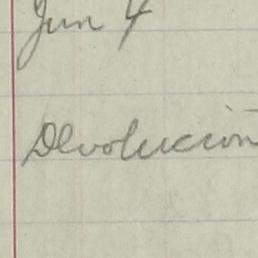 Jun 4
Devolución